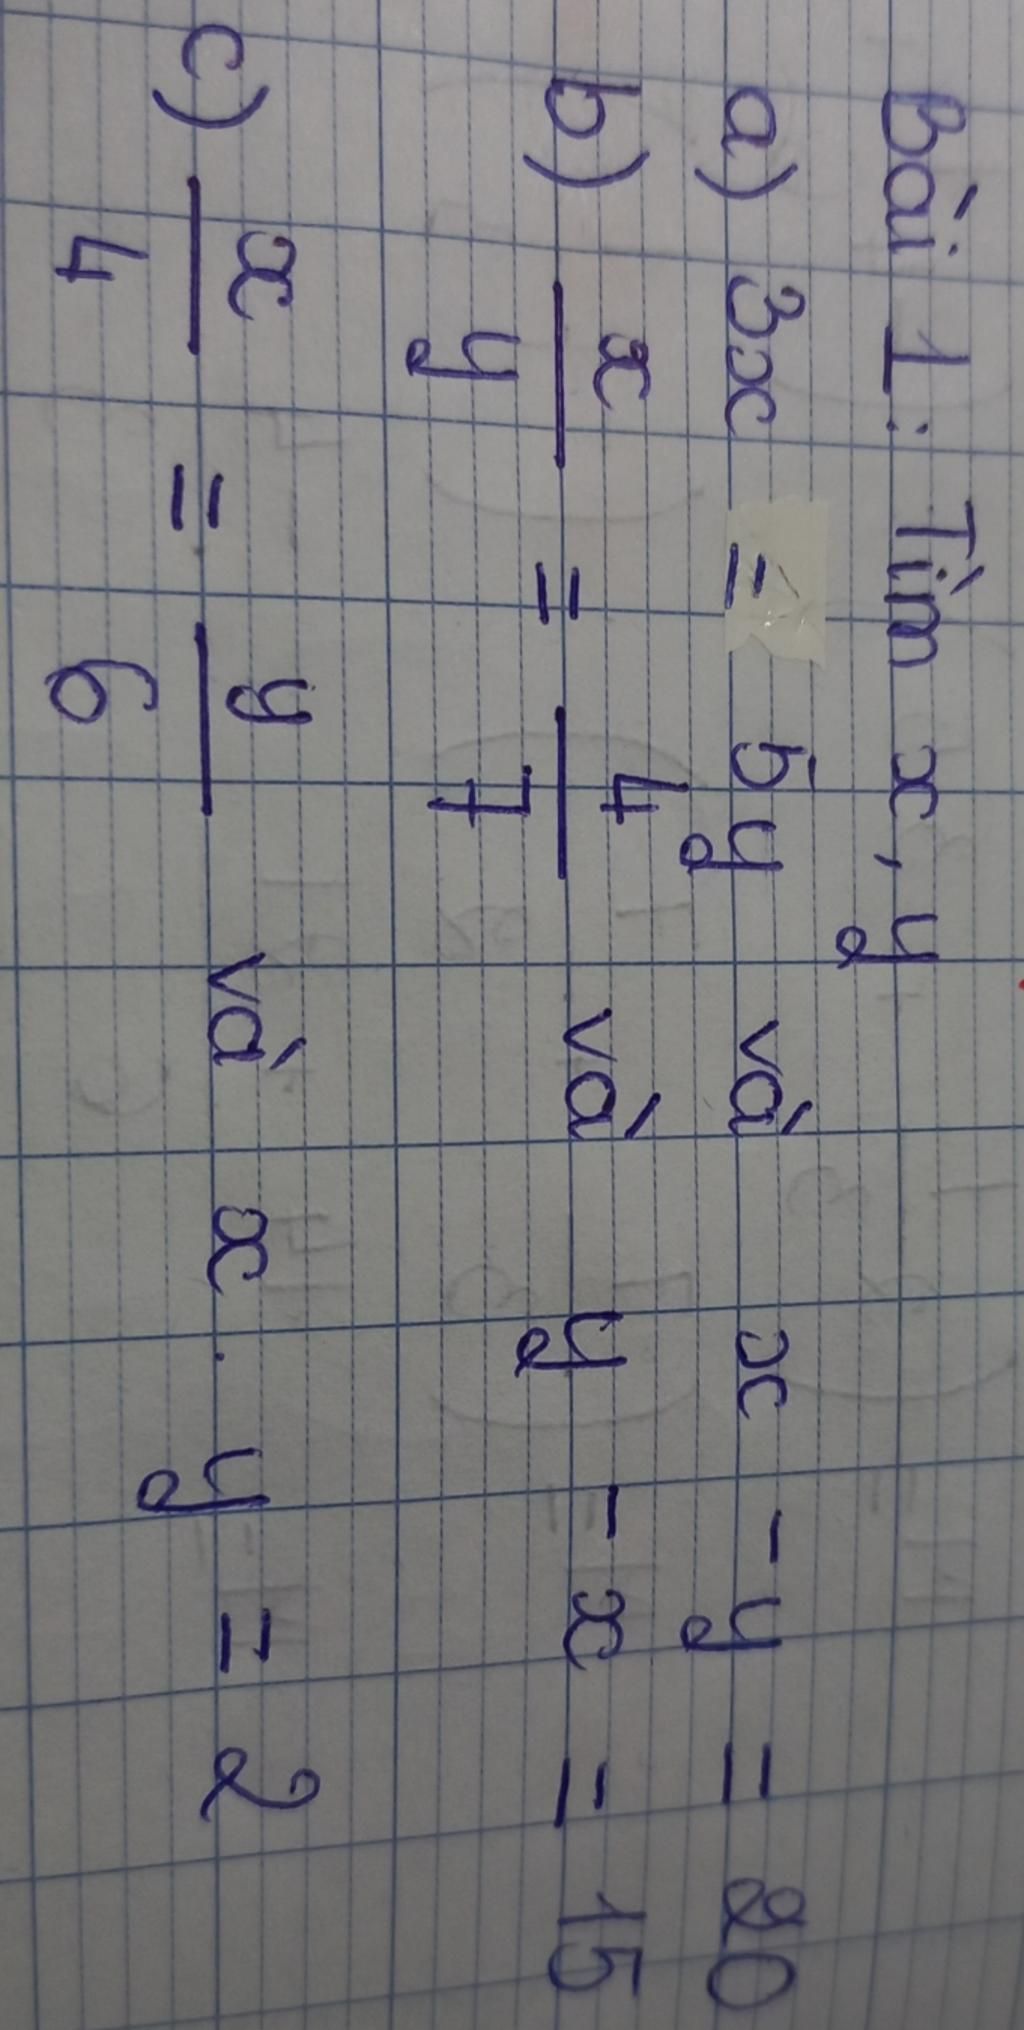 Bài 1: Tìm x, y
a) 3x = 5y và x - y = 20
b) x/y = 4/7 và y - x = 15
c) x/4 = y/6 và x . y = 2